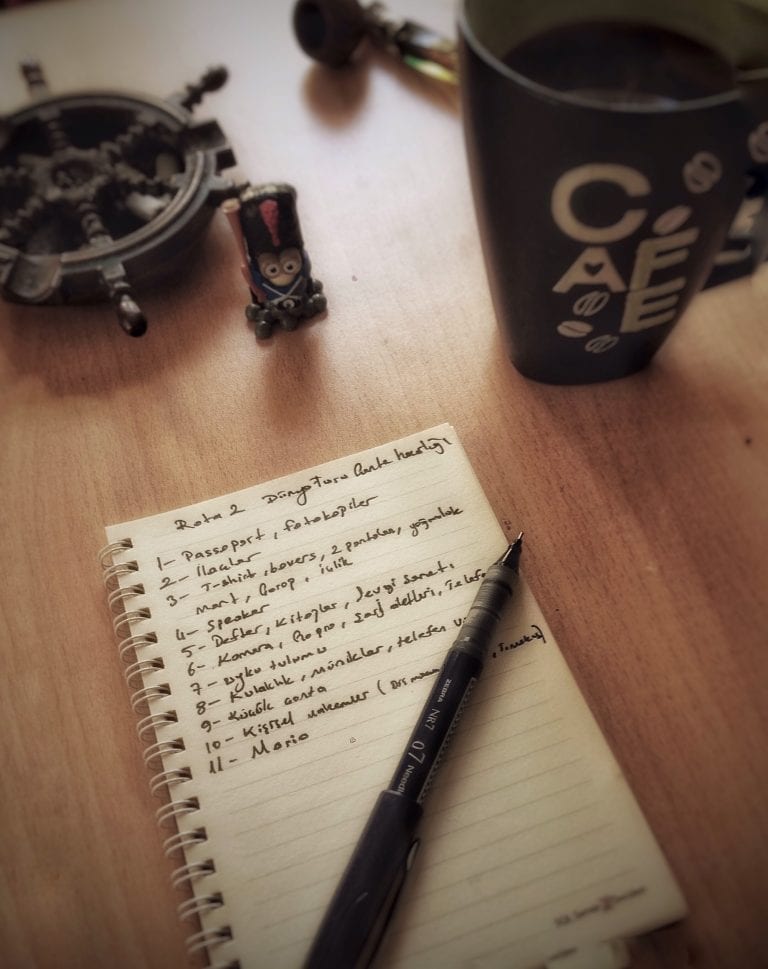 CAFE
Rota 2 Dünya Turu Çanta hazırlığı
1- Passoport, fotokopiler
2- İlaçlar
3- T-shirt, boxers, 2 pantolon, yağmurluk
mont, çorap, içlik
4- Speaker
5- Defter, Kitaplar, Sevgi Sanatı,
6- Kamera, Gopro, Şarj aletleri, Telefo
7- uyku tulumu
8- Kulaklık, müzikler, telefon
9- Küçük çanta
10- Kişisel malzemeler (
11- Mario
ZEBRA NR7 0.7 Needle